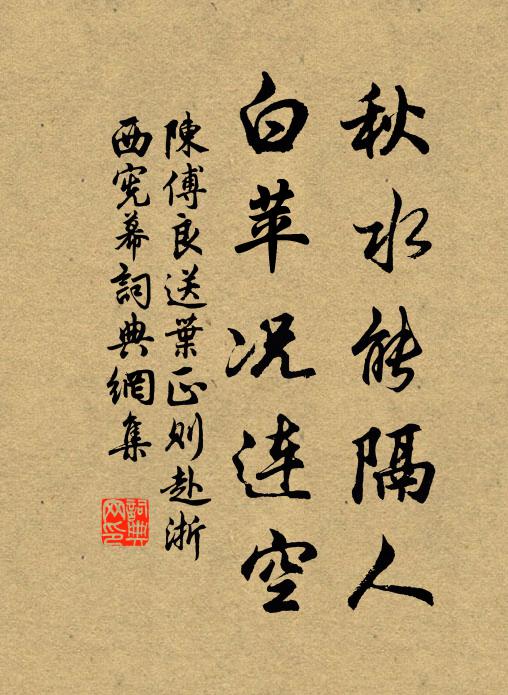 秋水能隔人
白苹况连空
陳傅良送葉正则赴浙
西宪幕詞典網集
詞典网印